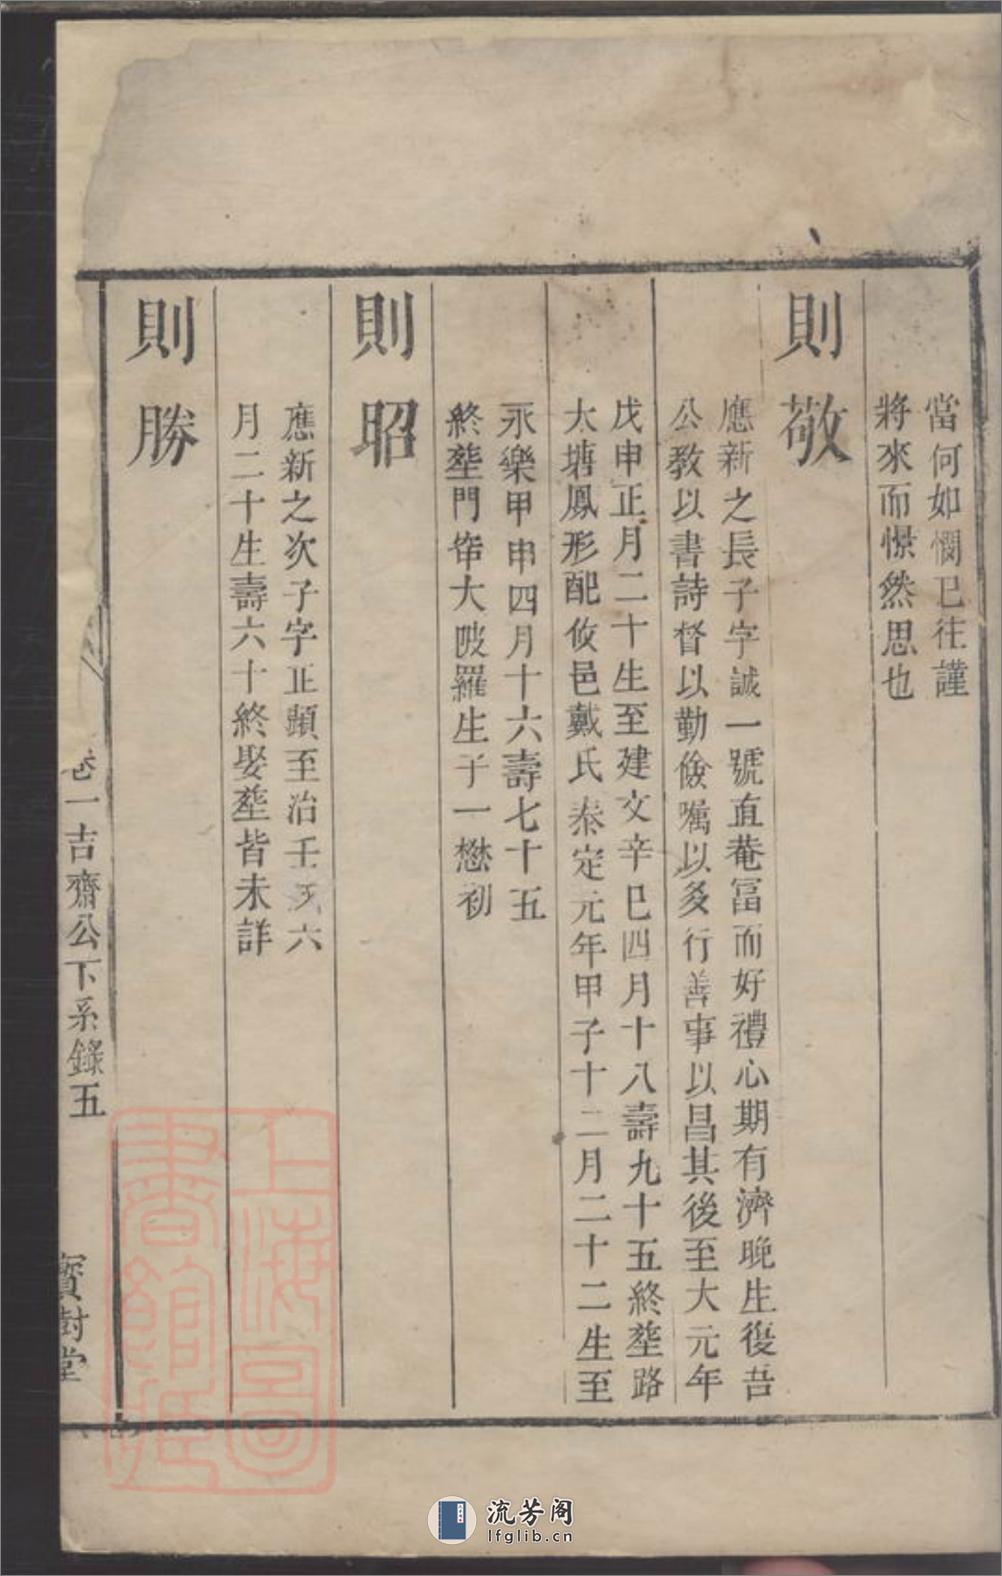 當何如憫已往謹
將來而憬然思也
則敬
應新之長子字誠一號直菴富而好禮心期有濟晚生復吾
公教以書詩督以勤儉囑以多行善事以昌其後至大元年
戊申正月二十生至建文辛巳四月十八壽九十五終塟路
太塘鳳形配攸邑戴氏泰定元年甲子十二月二十二生至
永樂甲申四月十六壽七十五
終塟門前大陂羅生子一懋初
則昭
應新之次子字正顯至治壬戌六
月二十生壽六十終娶塟皆未詳
則勝
卷一吉齋公下系錄五
寶樹堂
上海圖
書館藏
流芳阁
lfglib.cn